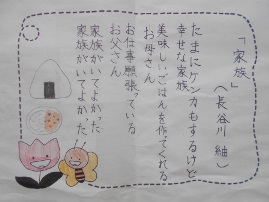 「家族」
(長谷川 紬)
たまにケンカもするけど
幸せな家族
美味しいごはんを作てくれる
お母さん
お仕事願張っている
お父さん
家族がいてよかった
家族がいてよかった